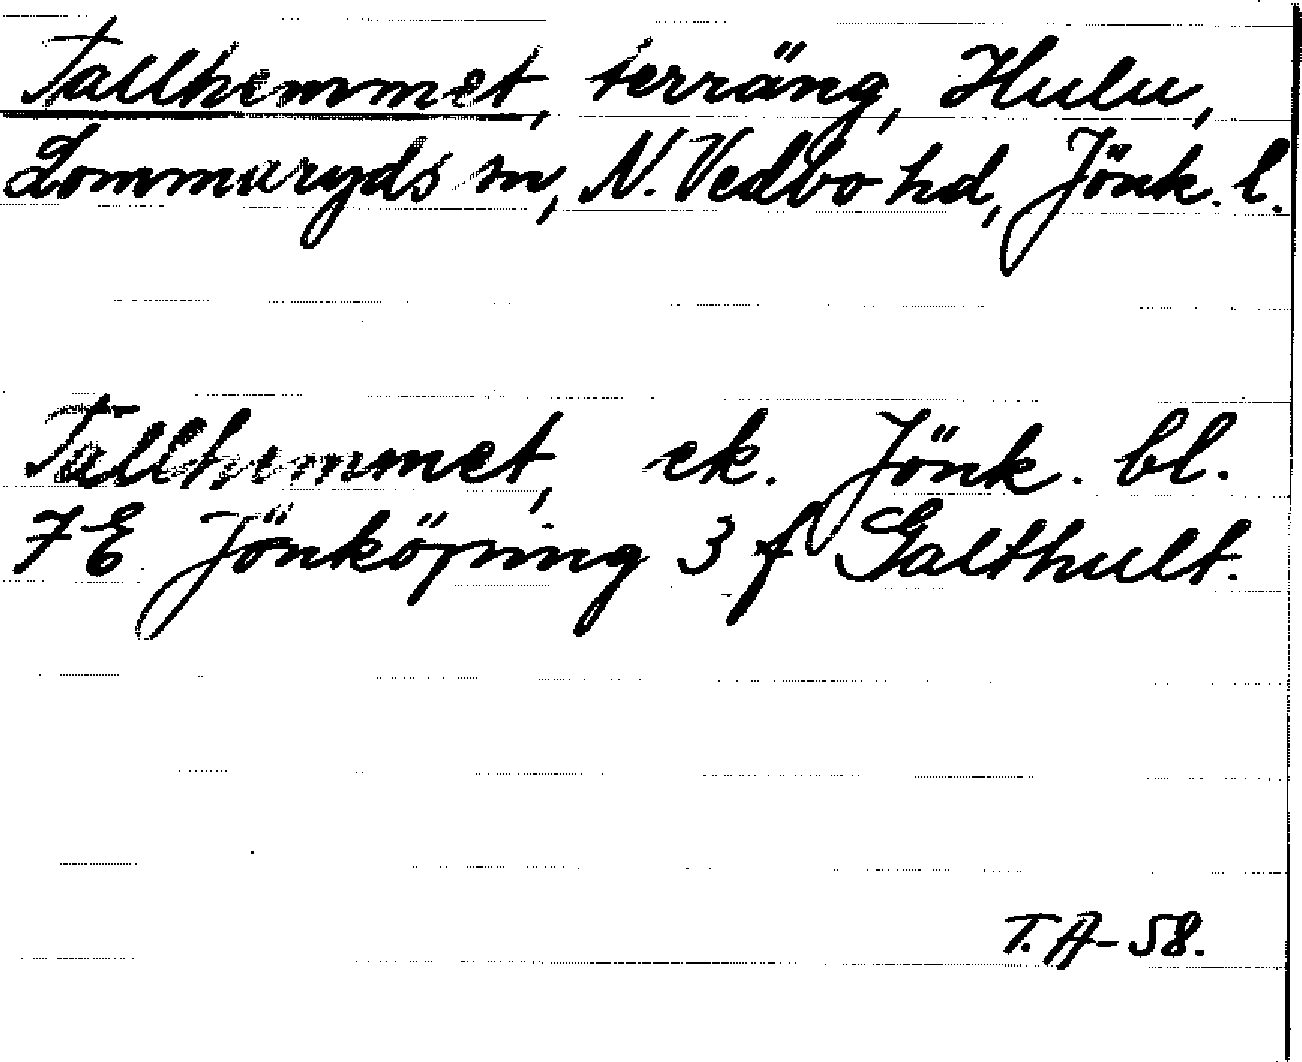 Tallhemmet, terräng, Hulu,
Lommaryds sn, N. Vedbo hd, Jönk. l.
Tallhemmet, ek. Jönk. bl.
7E Jönköping 3 f Galthult.
T. A-58.